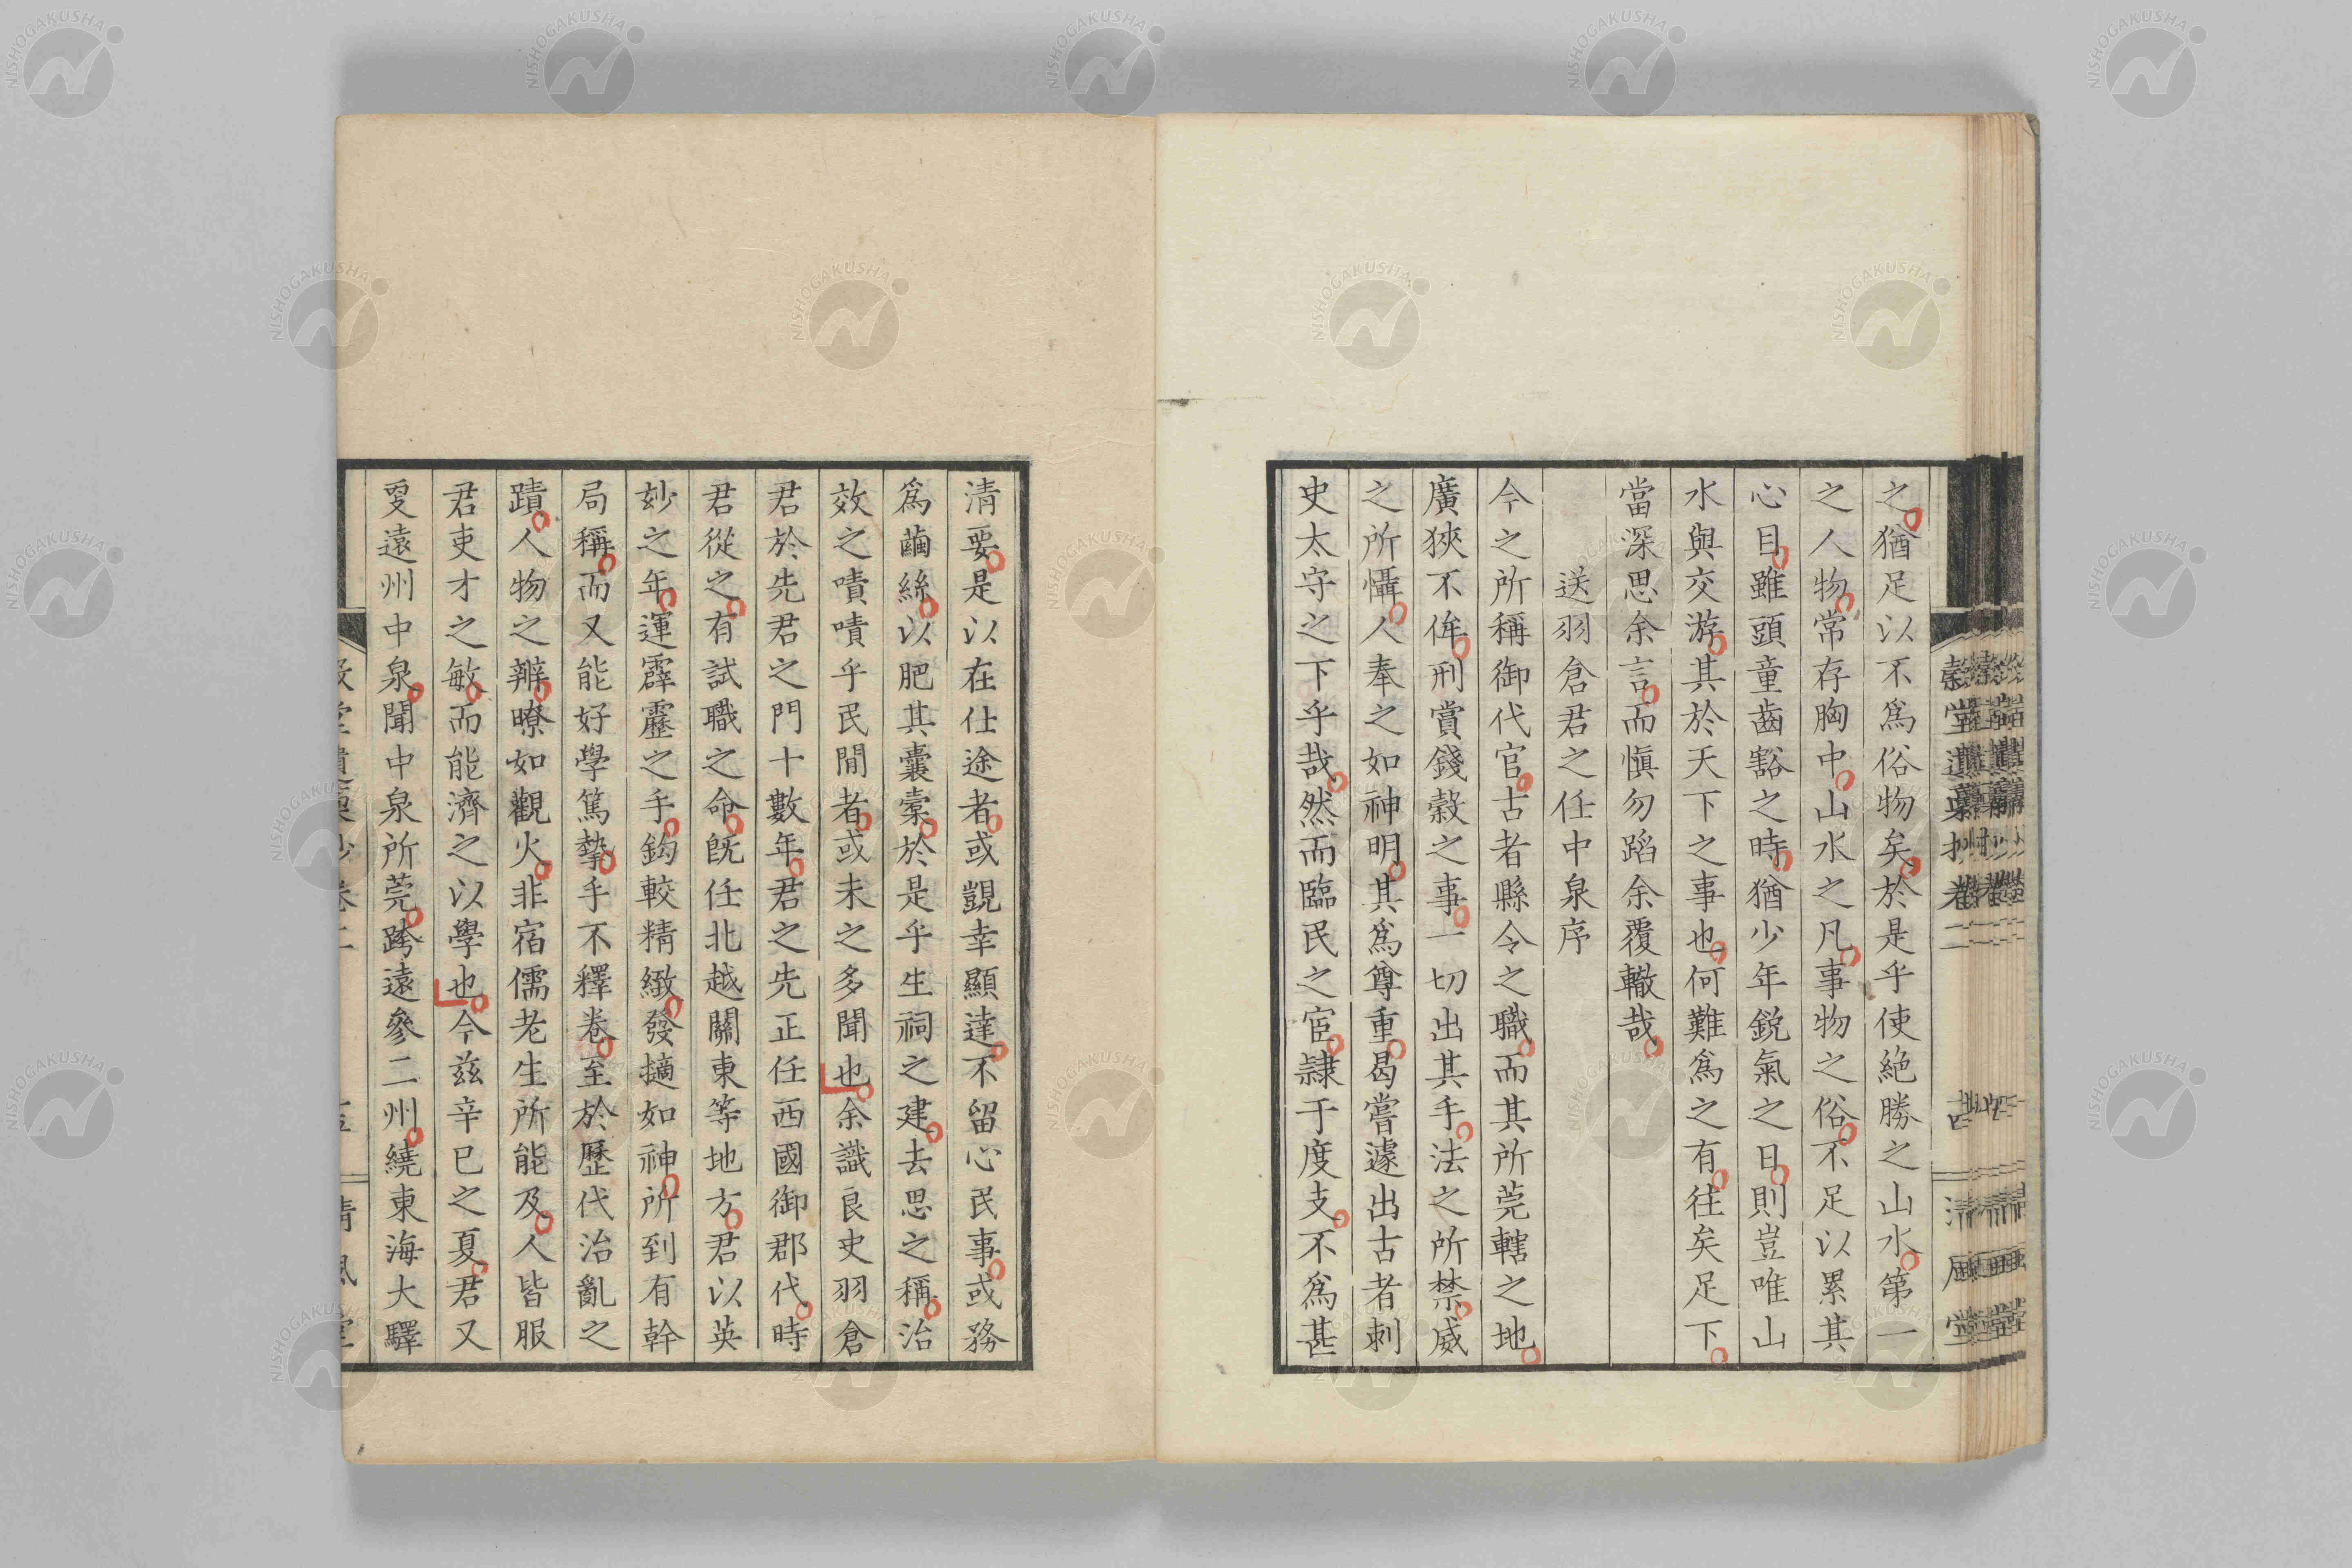 之猶足以不爲俗物矣於是乎使絶勝之山水第一
之人物常存胸中山水之凡事物之俗不足以累其
心目雖頭童齒豁之時猶少年鋭氣之日則豈唯山
水與交游其於天下之事也何難爲之有往矣足下
當深思余言而愼勿蹈余覆轍哉
送羽倉君之任中泉序
今之所稱御代官古者縣令之職而其所莞轄之地
廣狹不侔刑賞錢穀之事一切出其手法之所禁威
之所懾人奉之如神明其爲尊重曷嘗遽出古者刺
史太守之下乎哉然而臨民之宦隷于度支不爲甚
清要是以在仕途者或覬幸顯達不留心民事或務
爲繭絲以肥其囊橐於是乎生祠之建去思之稱治
效之嘖嘖乎民間者或未之多聞也余識良吏羽倉
君於先君之門十數年君之先正任西國御郡代時
君從之有試職之命既任北越關東等地方君以英
妙之年運霹靂之手鈎較精緻發擿如神所到有幹
局稱而又能好學篤摯手不釋卷至於歷代治亂之
蹟人物之辨暸如觀火非宿儒老生所能及人皆服
君吏才之敏而能濟之以學也今茲辛巳之夏君又
更遠州中泉聞中泉所莞跨遠參二州繞東海大驛